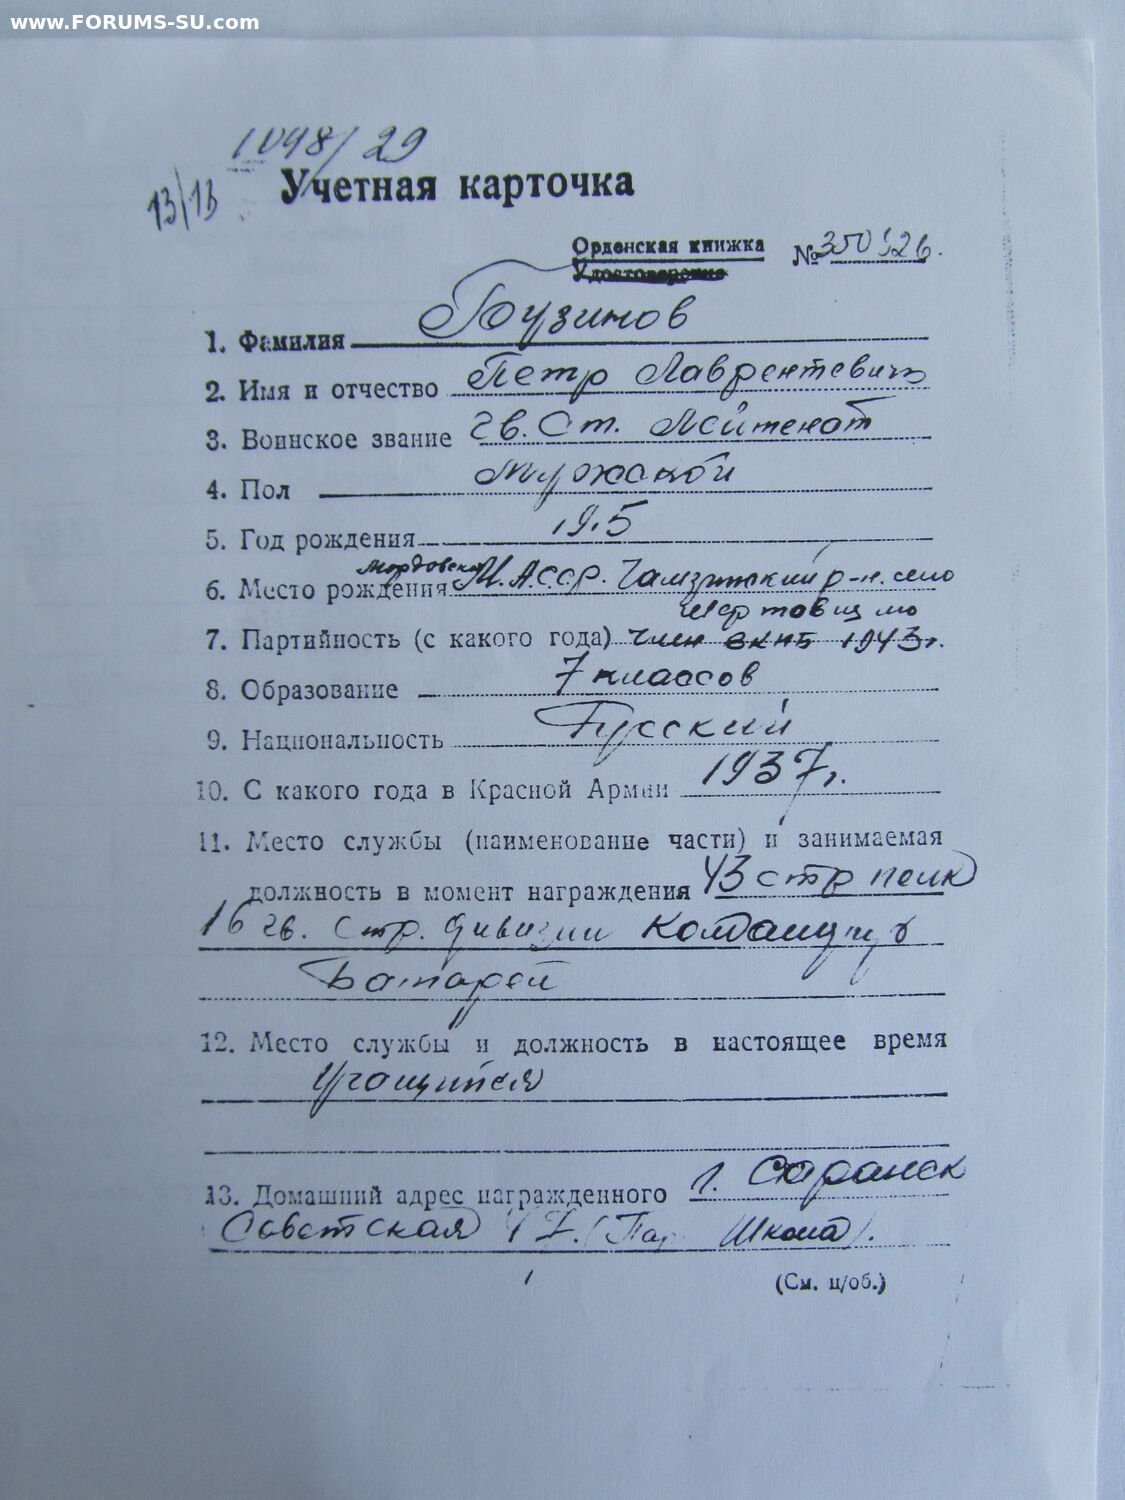 www.FORUMS-SU.com
1048/29
13/13
Учетная карточка
Орденская книжка №
Удостоверение
1. Фамилия Грузинов
2. Имя и отчество Петр Лаврентевичь
3. Воинское звание гв. Ст. Лейтенат
4. Пол мужской
5. Год рождения
мордовская
6. Место рождения М.А.С.С.Р. Чамзинский р-н. село
7. Партийность (с какого года) член ВКПБ 1943г.
8. Образование 7 классов
9. Национальность Русский
10. С какого года в Красной Армии 1937г.
11. Место службы (наименование части) и занимаемая
должность в момент награждения 43 стр полк
16 гв. Стр. дивизии
Батареи
12. Место службы и должность в настоящее время
Учащийся
13. Домашний адрес награжденного г. Саранск
Советская 47. (Пар Школа).
(См. н/об.)